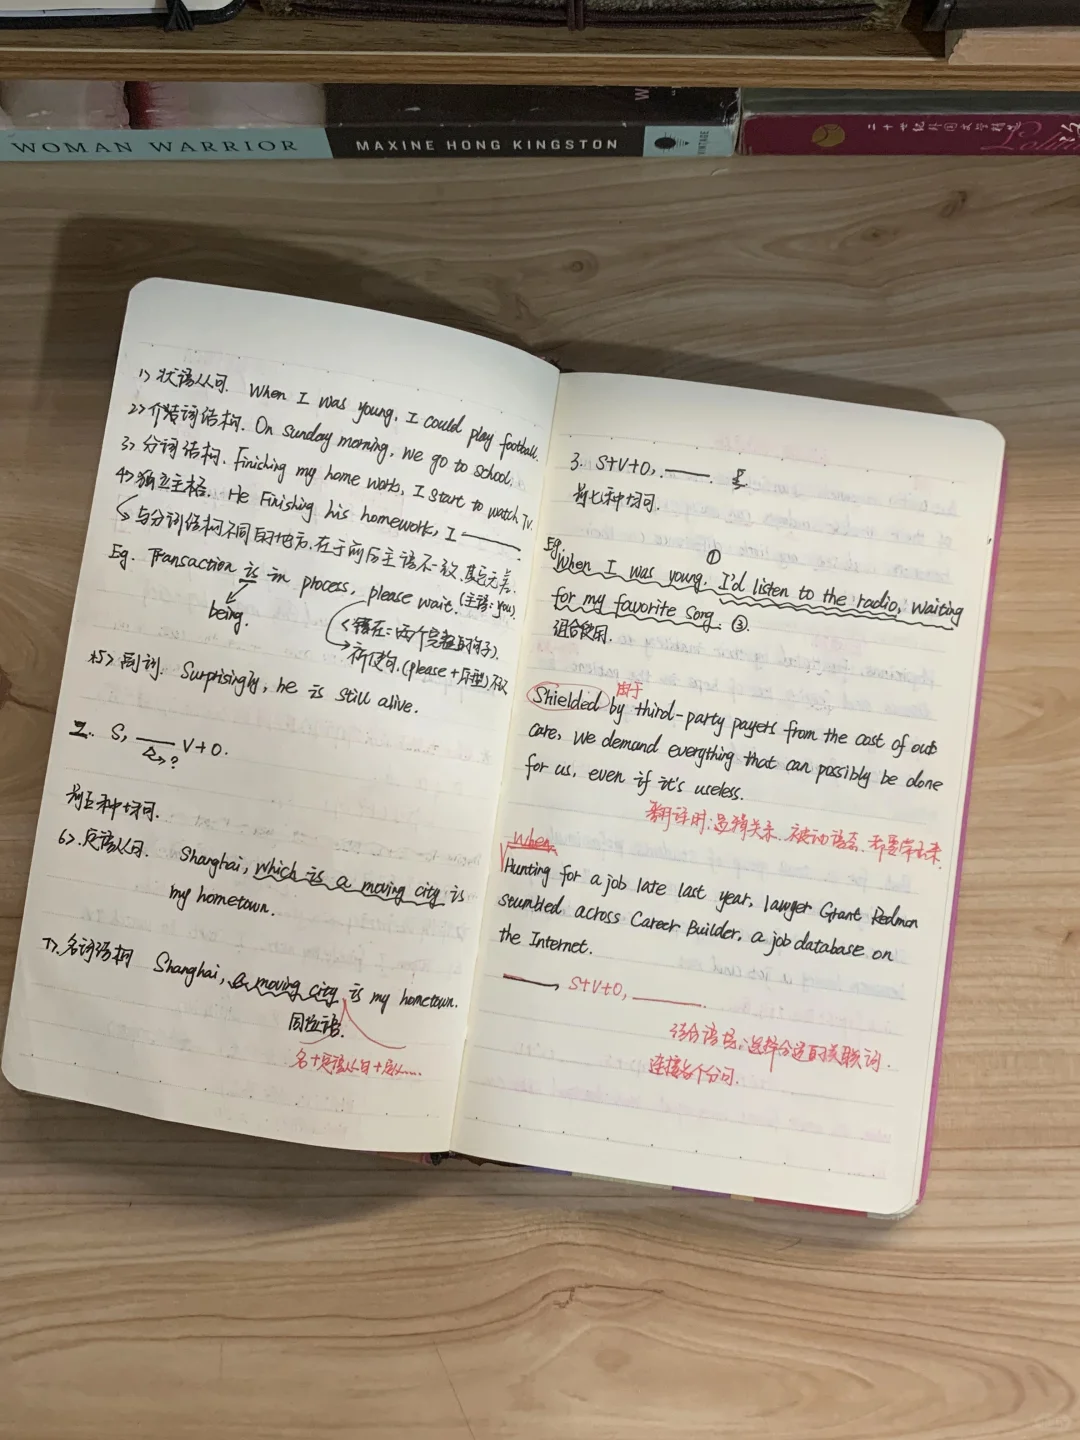 WOMAN WARRIOR
MAXINE HONG KINGSTON
VINTAGE
二十世纪外国文学精选
Lolita
1> 状语从句. When I was young, I could play football.
2> 介词结构. On Sunday morning, we go to school.
3> 分词结构. Finiching my home work, I start to watch TV.
4> 独立主格. He Finishing his homework, I ———.
与分词结构不同的地方, 在于前后主语不一致, 其它无差.
Eg. Transaction is in process, please wait. (主语: you)
being.
<错在=两个完整的句子>.
祈使句. (please + 原型)
*5> 副词. Surprisingly, he is still alive.
2. S, ——— V+O.
?
前五种均可.
6>. 定语从句. Shanghai, which is a moving city is
my hometown.
7>. 名词结构 Shanghai, a moving city is my hometown.
同位语.
名+定语从句+定从......
3. S+V+O, ———.
前七种均可.
Eg. ①
When I was young, I'd listen to the radio, waiting
for my favorite song. ③.
组合使用.
由于
Shielded by third-party payers from the cost of our
care, we demand everything that can possibly be done
for us, even if it's useless.
翻译时: 逻辑关系. 被动语态. 都要带出来.
When
Hunting for a job late last year, lawyer Grant Redmon
stumbled across Career Builder, a job database on
the Internet.
———, S+V+O, ———.
结合语境, 选择合适的关联词.
连接各个分句.